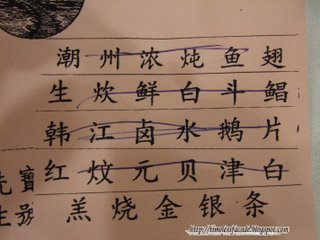 潮州浓炖鱼翅
生炊鲜白斗鲳
韩江卤水鹅片
红炆元贝津白
羔烧金银条
寶號
先生
http://timelessfacade.blogspot.com